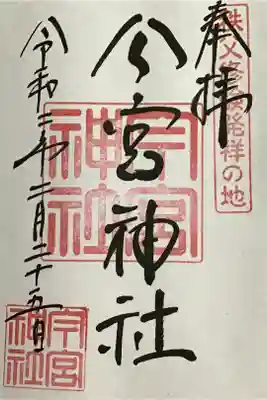 奉拝
秩父修験発祥の地
今宮神社
今宮神社
令和二年二月二十五日
今宮神社